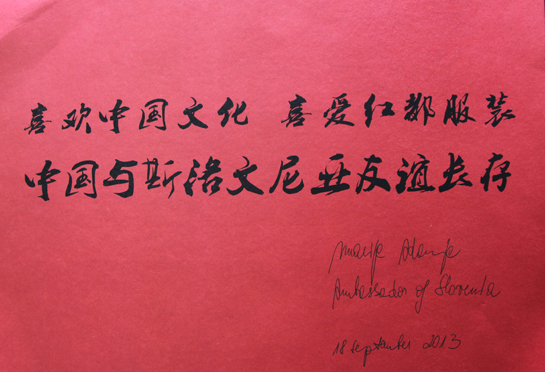 喜欢中国文化 喜爱红都服装
中国与斯洛文尼亚友谊长存
Marija Adanja
Ambassador of Slovenia
18 September 2013